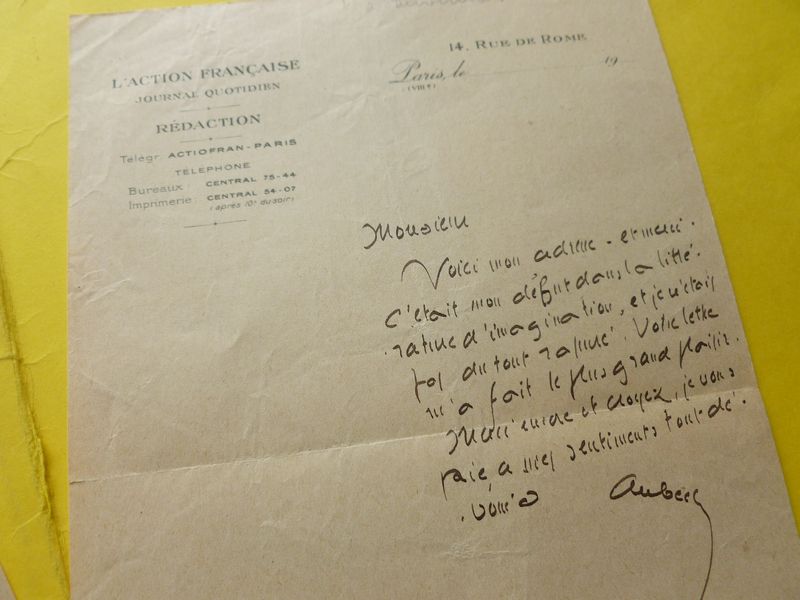 14, RUE DE ROME
L'ACTION FRANÇAISE
JOURNAL QUOTIDIEN
RÉDACTION
Télégr. ACTIOFRAN-PARIS
TÉLÉPHONE
Bureaux : CENTRAL 75-44
Imprimerie : CENTRAL 54-07
(après 10h du soir)
Paris, le 19
(VIIIe)
Monsieur
Voici mon adresse - et merci.
C'était mon début dans la litté-
rature d'imagination, et je n'étais
pas du tout rassuré. Votre lettre
m'a fait le plus grand plaisir.
Merci encore et croyez, je vous
prie, à mes sentiments tout dé-
voués